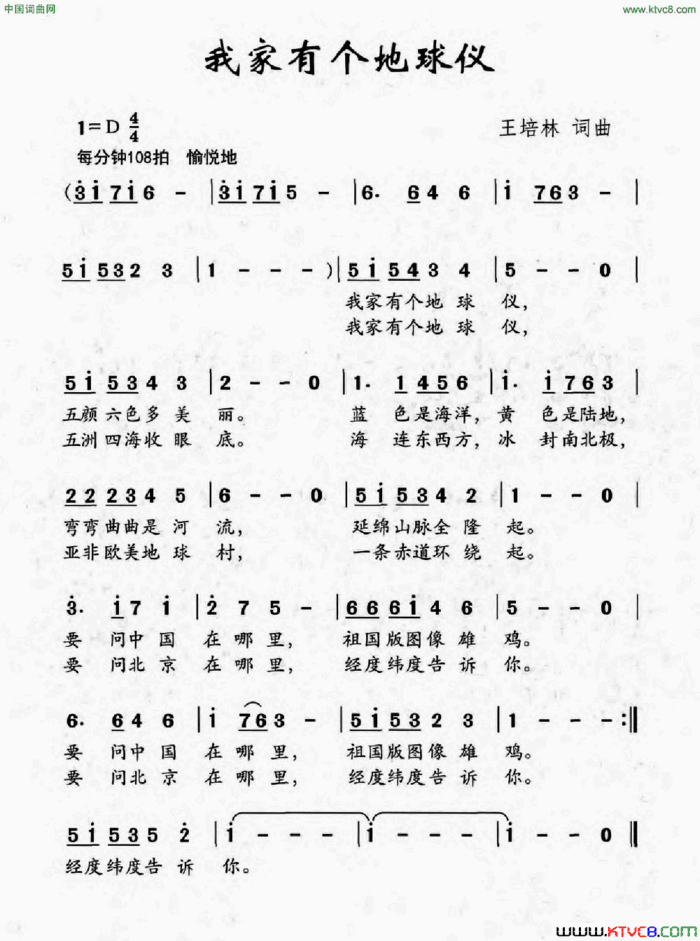 中国词曲网
www.ktvc8.com
我家有个地球仪
1=D 4/4
王培林 词曲
每分钟108拍 愉悦地
(3i7i6 - | 3i7i5 - | 6. 646 | i 763 - |
5i532 3 | 1 - - - ) | 5i543 4 | 5 - - 0 |
我家有个地 球 仪,
我家有个地 球 仪,
5i534 3 | 2 - - 0 | 1. 1456 | i. i763 |
五颜六色多 美 丽。 蓝 色是海洋, 黄 色是陆地,
五洲四海收 眼 底。 海 连东西方, 冰 封南北极,
22234 5 | 6 - - 0 | 5i534 2 | 1 - - 0 |
弯弯曲曲是 河 流, 延绵山脉全 隆 起。
亚非欧美地 球 村, 一条赤道环 绕 起。
3. i7 i | 2 7 5 - | 666i 6 4 | 5 - - 0 |
要 问中 国 在 哪 里, 祖国版图像 雄 鸡。
要 问北 京 在 哪 里, 经度纬度告 诉 你。
6. 64 6 | i 763 - | 5i532 3 | 1 - - - :||
要 问中 国 在 哪 里, 祖国版图像 雄 鸡。
要 问北 京 在 哪 里, 经度纬度告 诉 你。
5i535 2 | i - - - | i - - - | i - - 0 ||
经度纬度告 诉 你。
www.KTVC8.com